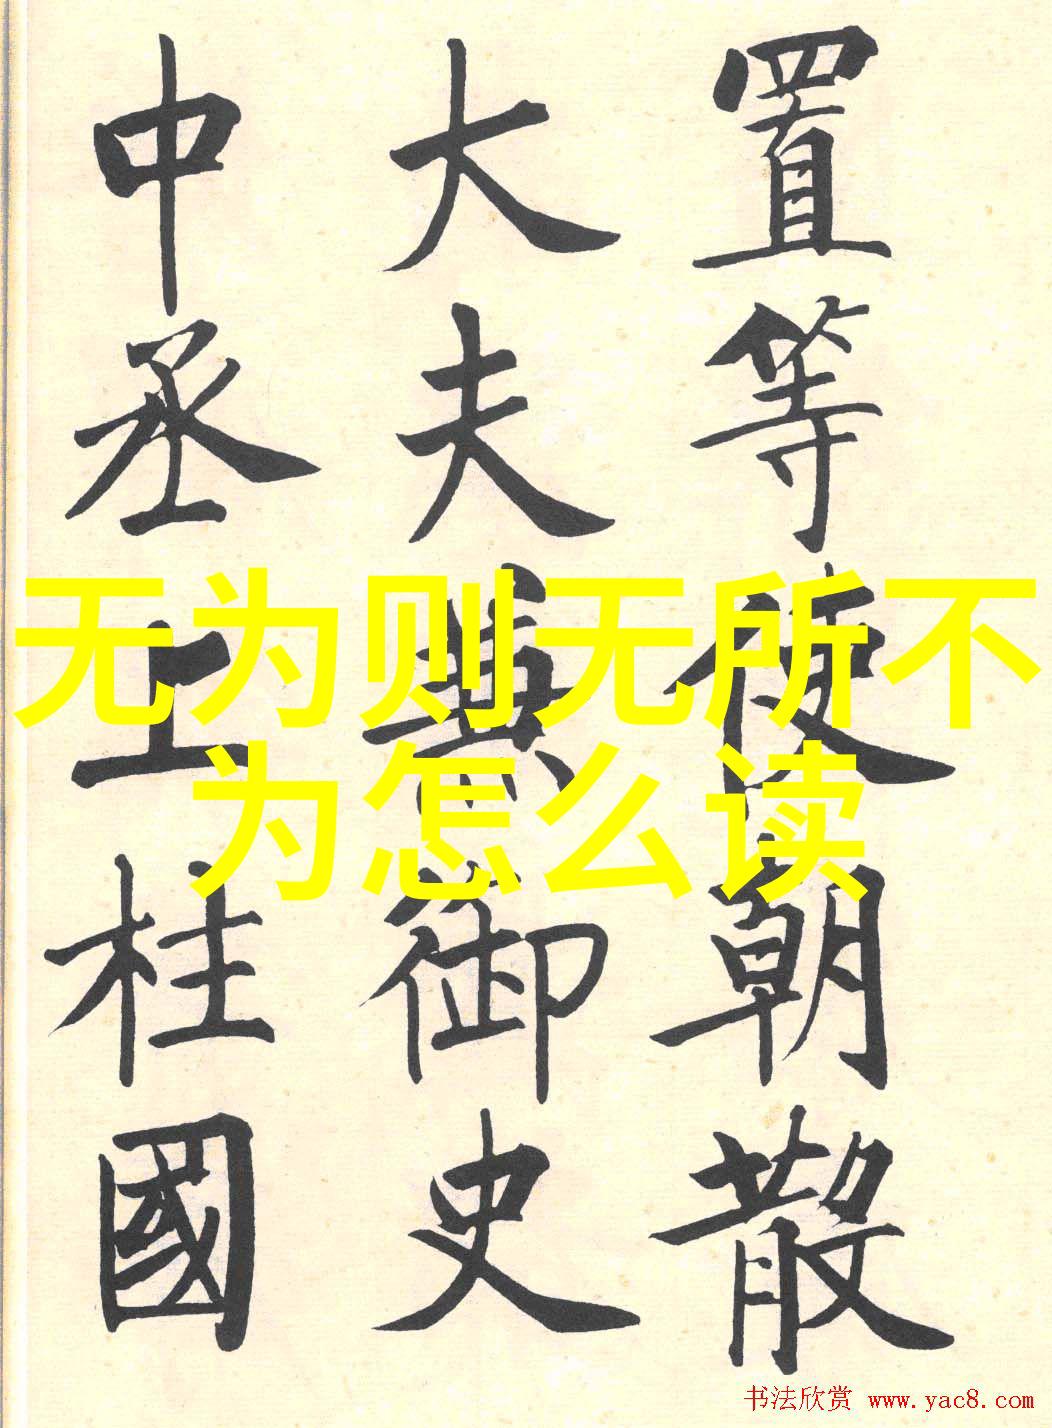 置等使朝散
大夫兼御史
中丞上柱國
无为则无所不
为怎么读
书法欣赏 www.yac8.com